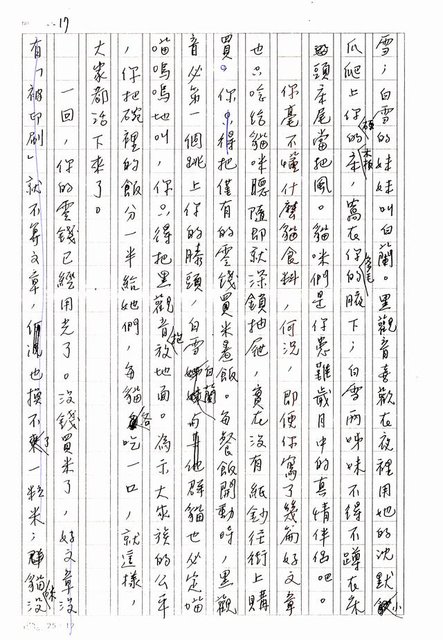 17
雪;白雪的妹妹叫白蘭。黑觀音喜歡在夜裡用她的沈默小
爪爬上你的床,窩在你的腋下;白雪兩姊妹不得不蹲在床
頭床尾當把風。貓咪們是你患難歲月中的真情伴侶吧。
你毫不懂什麼貓食料,何況,即便你寫了幾篇好文章
也只唸給貓咪聽隨即就深鎖抽屜,實在沒有紙鈔往街上購
買。你只得把僅有的零錢買米煮飯。每餐飯開動時,黑觀
音必第一個跳上你的膝頭,白雪白蘭與其他群貓也必定喵
喵嗚嗚地叫,你只得把黑觀音抱放地面。為示大家族的公平
,你把碗裡的飯分一半給她們,每貓各吃一口,就這樣,
大家都活下來了。
一回,你的零錢已經用光了。沒錢買米了,好文章沒
有「被印刷」就不算文章,也摸不了一粒米;群貓沒